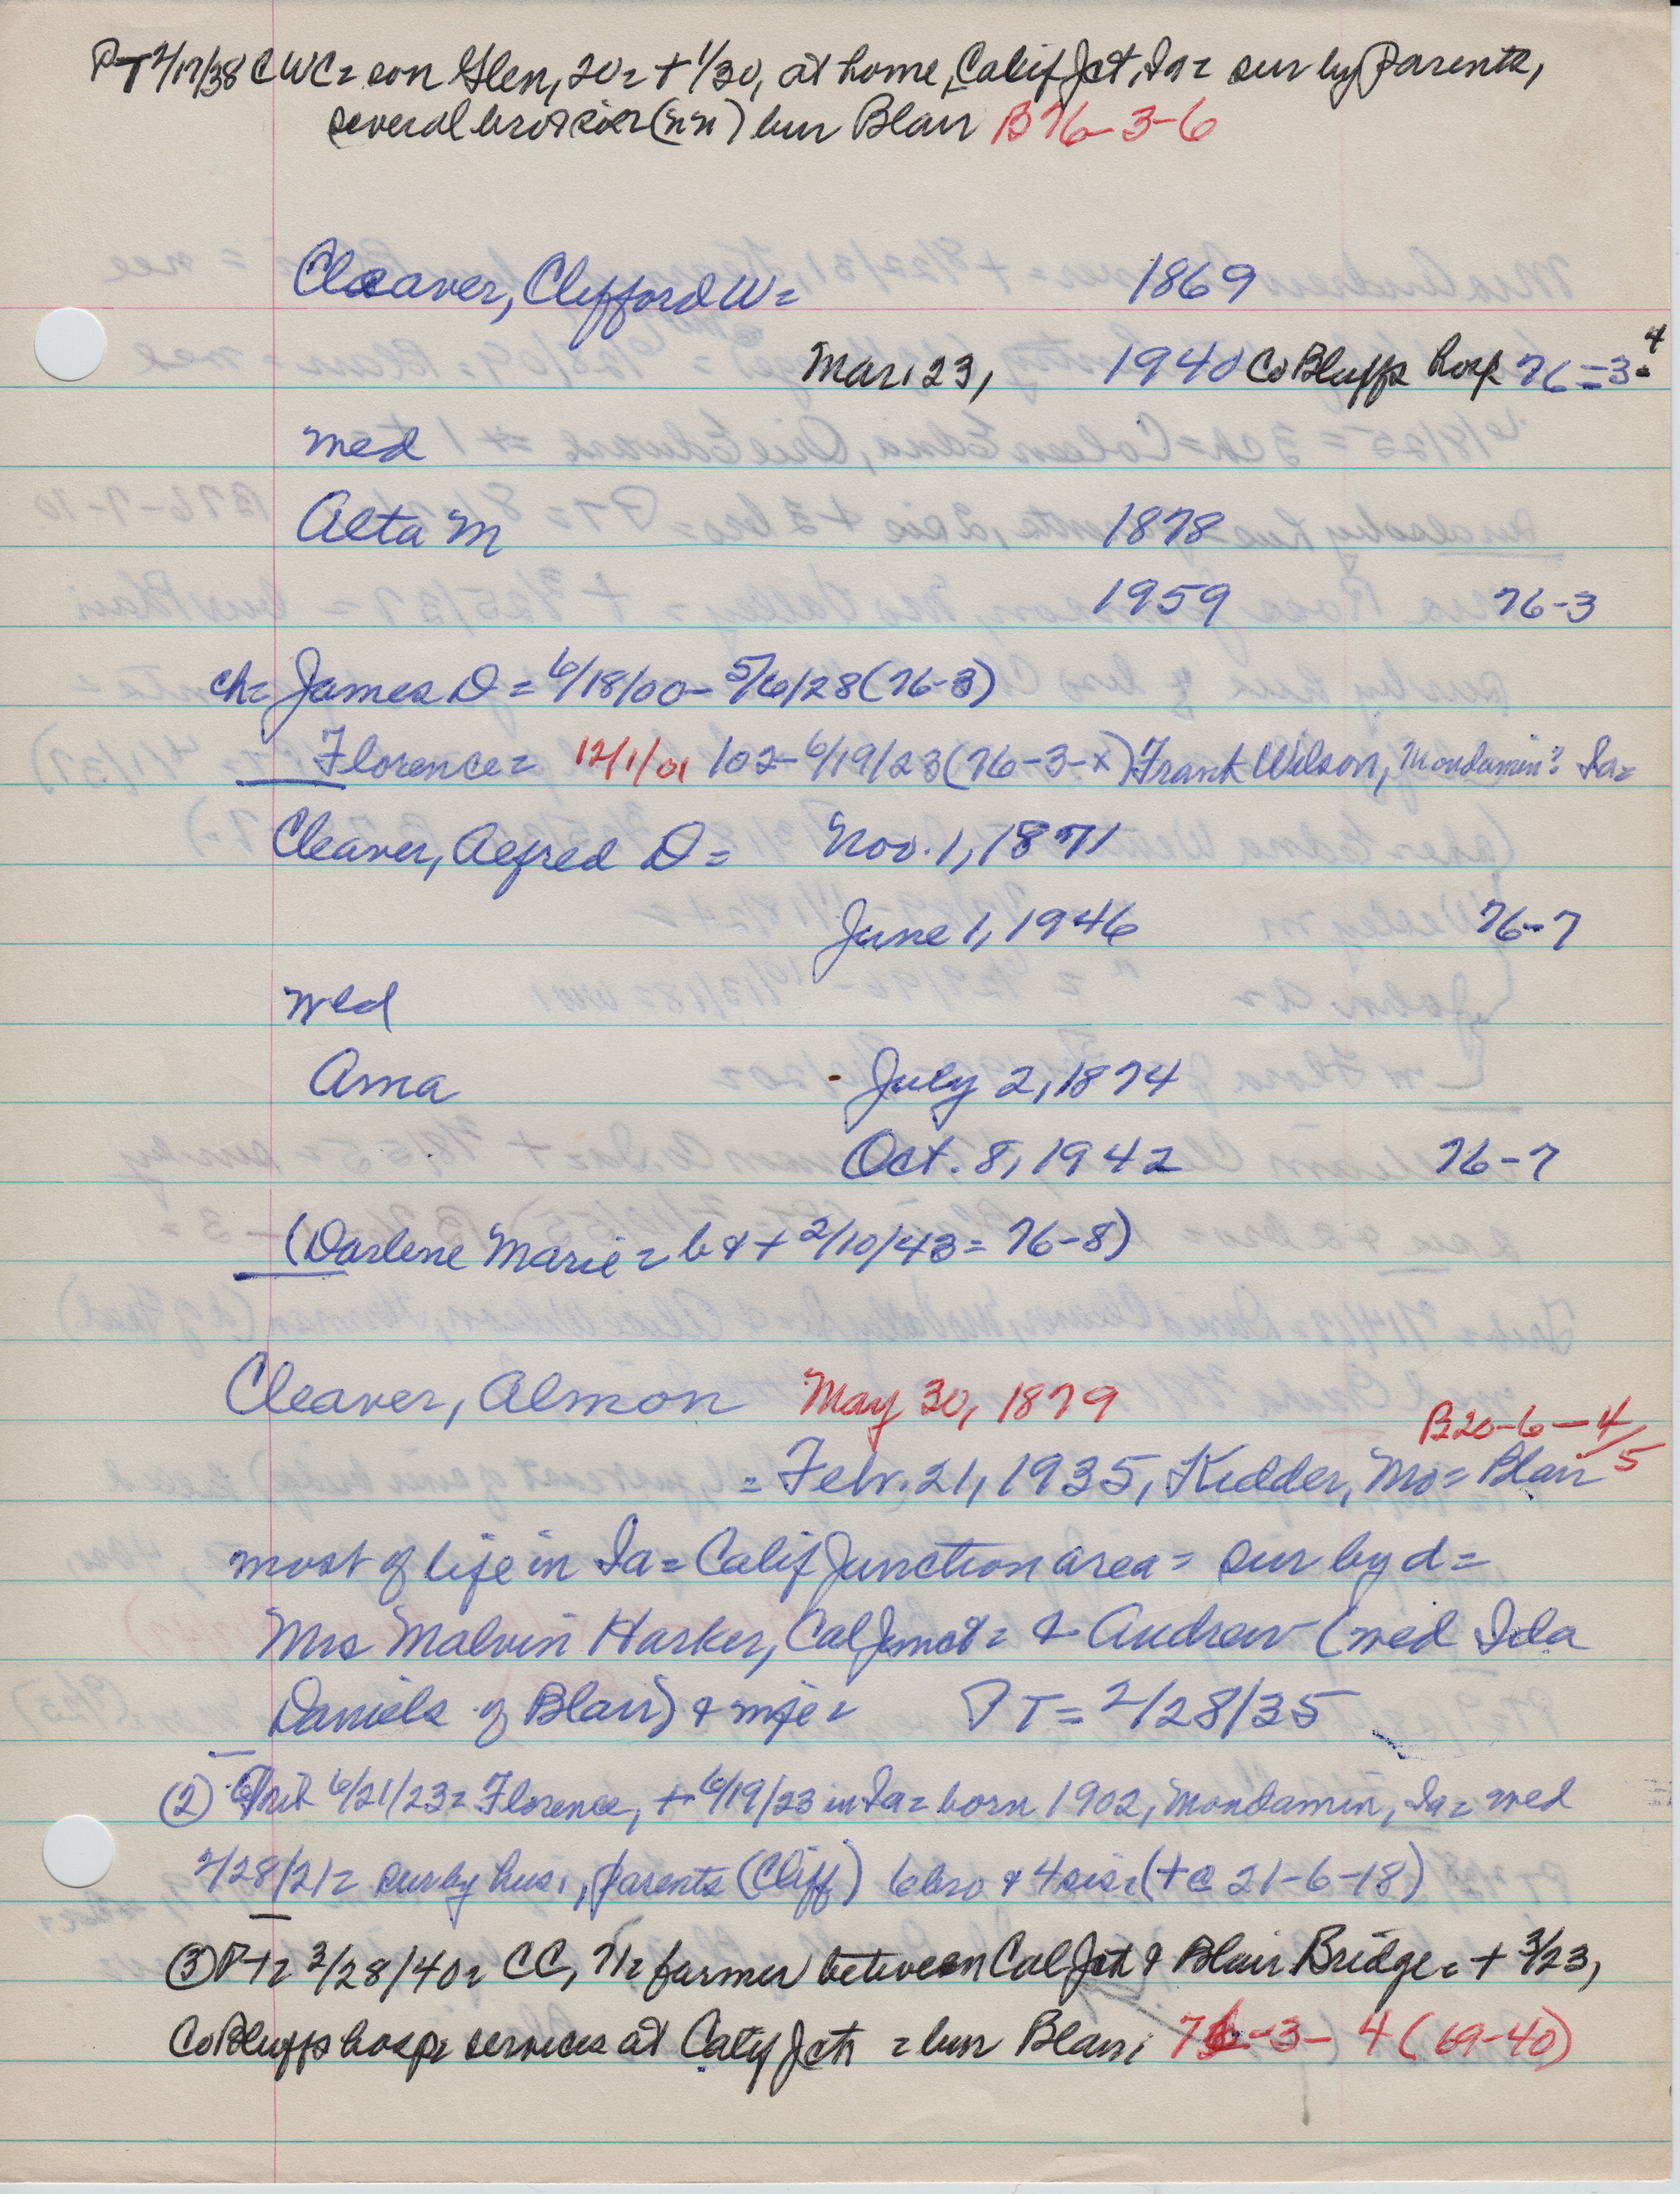 PT 2/17/38 CWC = son Glen, 20 = + 1/30, at home, Calif Jct, Ia = sur by parents,
several bro & sis (xx) bur Blair B76-3-6
Cleaver, Clifford W = 1869
Mar 23, 1940 Co Bluffs hosp 76-3-4
med
Alta M 1878
1959 76-3
ch = James D = 6/18/00 - 5/6/28 (76-3)
Florence = 12/1/01 /02 - 6/19/23 (76-3-x) Frank Wilson, Mondamin? Ia =
Cleaver, Alfred D = Nov. 1, 1871
June 1, 1946 76-7
med
Anna July 2, 1874
Oct. 8, 1942 76-7
(Darlene Marie = b & + 2/10/43 = 76-8)
Cleaver, Almon May 30, 1879
B20-6-4/5
= Febr. 21, 1935, Kidder, Mo = Blair
most of life in Ia = Calif Junction area = sur by d =
Mrs Malvin Harker, Cal Junct = & Andrew (med Ida
Daniels of Blair) & mfe = PT = 2/28/35
(2) 6/21/23 = Florence, + 6/19/23 in Ia = born 1902, Mondamin, Ia = med
2/28/21 = sur by hus, parents (Cliff) 6 bro & 4 sis = (+ @ 21-6-18)
(3) PT = 3/28/40 = CC, 71 = farmer between Cal Jct & Blair Bridge = + 3/23,
Co Bluffs hosp = services at Calif Jct = bur Blair 76-3-4 (69-40)